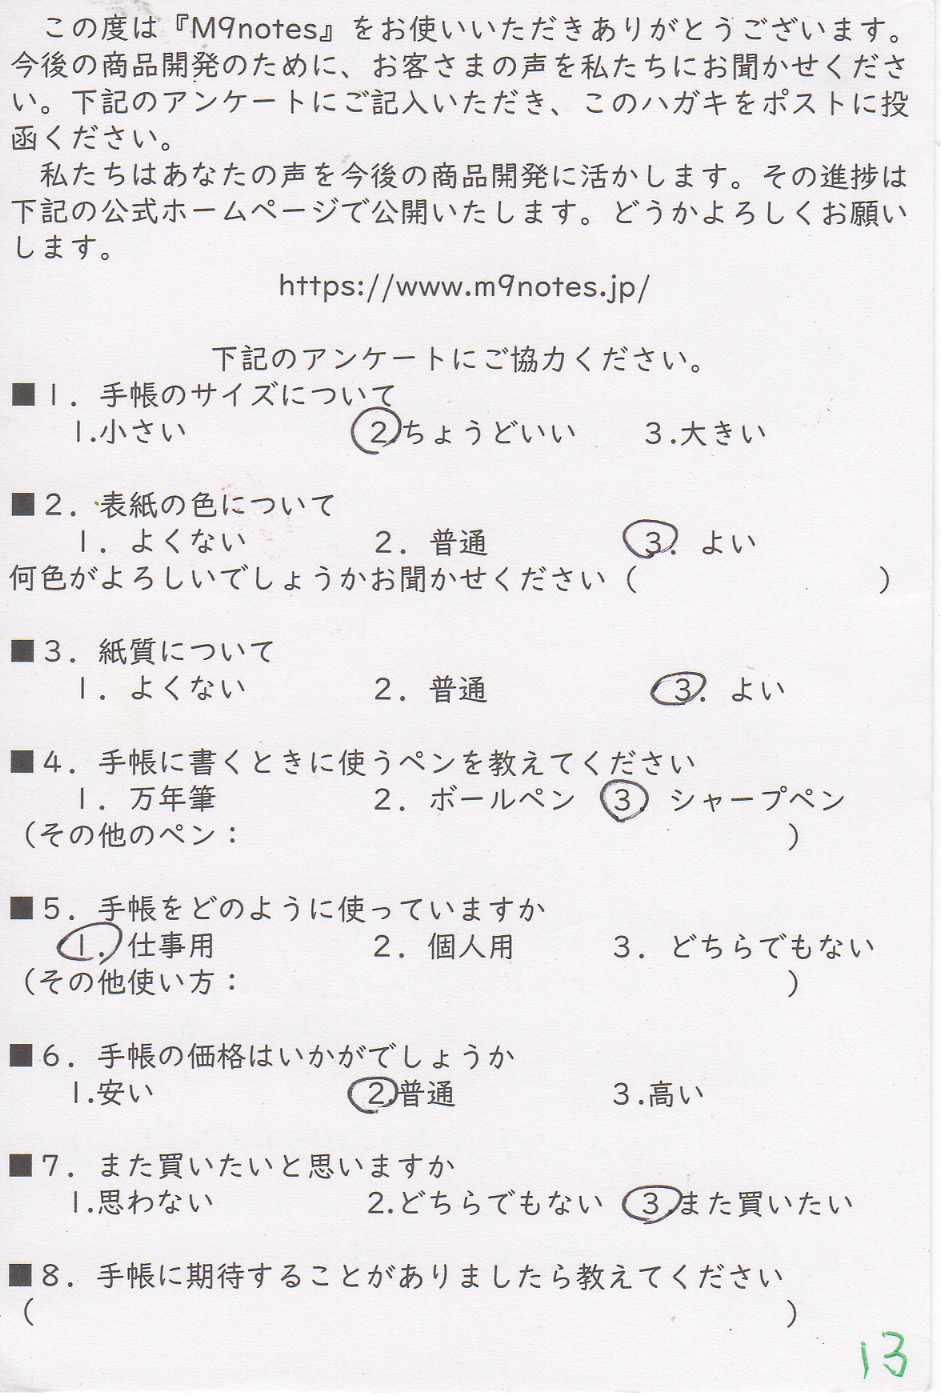 この度は『M9notes』をお使いいただきありがとうございます。
今後の商品開発のために、お客さまの声を私たちにお聞かせくださ
い。下記のアンケートにご記入いただき、このハガキをポストに投
函ください。
私たちはあなたの声を今後の商品開発に活かします。その進捗は
下記の公式ホームページで公開いたします。どうかよろしくお願い
します。
https://www.m9notes.jp/
下記のアンケートにご協力ください。
■1．手帳のサイズについて
1.小さい 2.ちょうどいい 3.大きい
■2．表紙の色について
1．よくない 2．普通 3．よい
何色がよろしいでしょうかお聞かせください（ ）
■3．紙質について
1．よくない 2．普通 3．よい
■4．手帳に書くときに使うペンを教えてください
1．万年筆 2．ボールペン 3．シャープペン
（その他のペン： ）
■5．手帳をどのように使っていますか
1．仕事用 2．個人用 3．どちらでもない
（その他使い方： ）
■6．手帳の価格はいかがでしょうか
1.安い 2.普通 3.高い
■7．また買いたいと思いますか
1.思わない 2.どちらでもない 3.また買いたい
■8．手帳に期待することがありましたら教えてください
（ ）
13